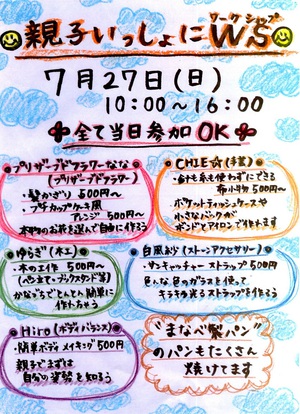 親子いっしょにWS
ワークショップ
7月27日(日)
10:00～16:00
全て当日参加OK
プリザーブドフラワーなな
(プリザーブドフラワー)
・髪かざり 500円～
・プチカップケーキ風
アレンジ 500円～
本物のお花を選んで自由に作ろう
CHIE☆(手芸)
・針も糸も使わずにできる
布小物 500円～
・ポケットティッシュケースや
小さなバックが
ボンドとアイロンで作れます
ゆらぎ(木工)
・木の工作 500円～
(ペン立て・ブックスタンド等)
かなづちでとんとん簡単に
作れちゃう
白風お砂(ストーンアクセサリー)
・サンキャッチャーストラップ 500円
色んな色のガラスを使って
キラキラ光るストラップを作ろう
Hiro(ボディバランス)
・簡単ボディメイキング 500円
親子でまずは
自分の姿勢を知ろう
"まなべ製パン"
のパンもたくさん
焼けてます